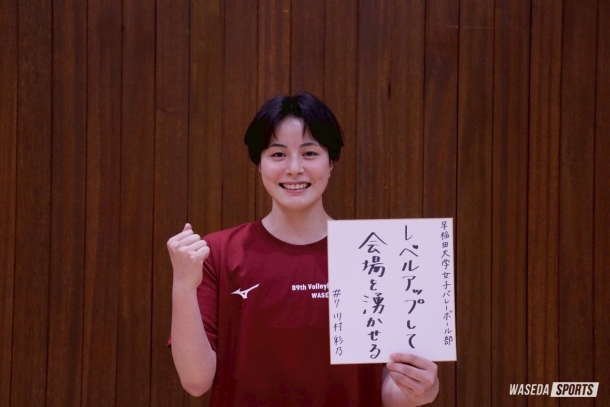 早稲田大学女子バレーボール部
レベルアップして
会場を湧かせる
#7 川村彩乃
89th Volleyb
WASE
WASEDA SPORTS